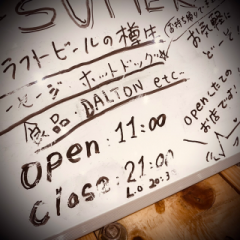 SUMMER
ラフトビールの樽生
ーページ・ホットドック
食品・DALTON etc...
OPEN : 11:00
Close : 21:00
L.O 20:3
お持ち帰り
お気軽に
どーぞ
OPENしたての
お店です!